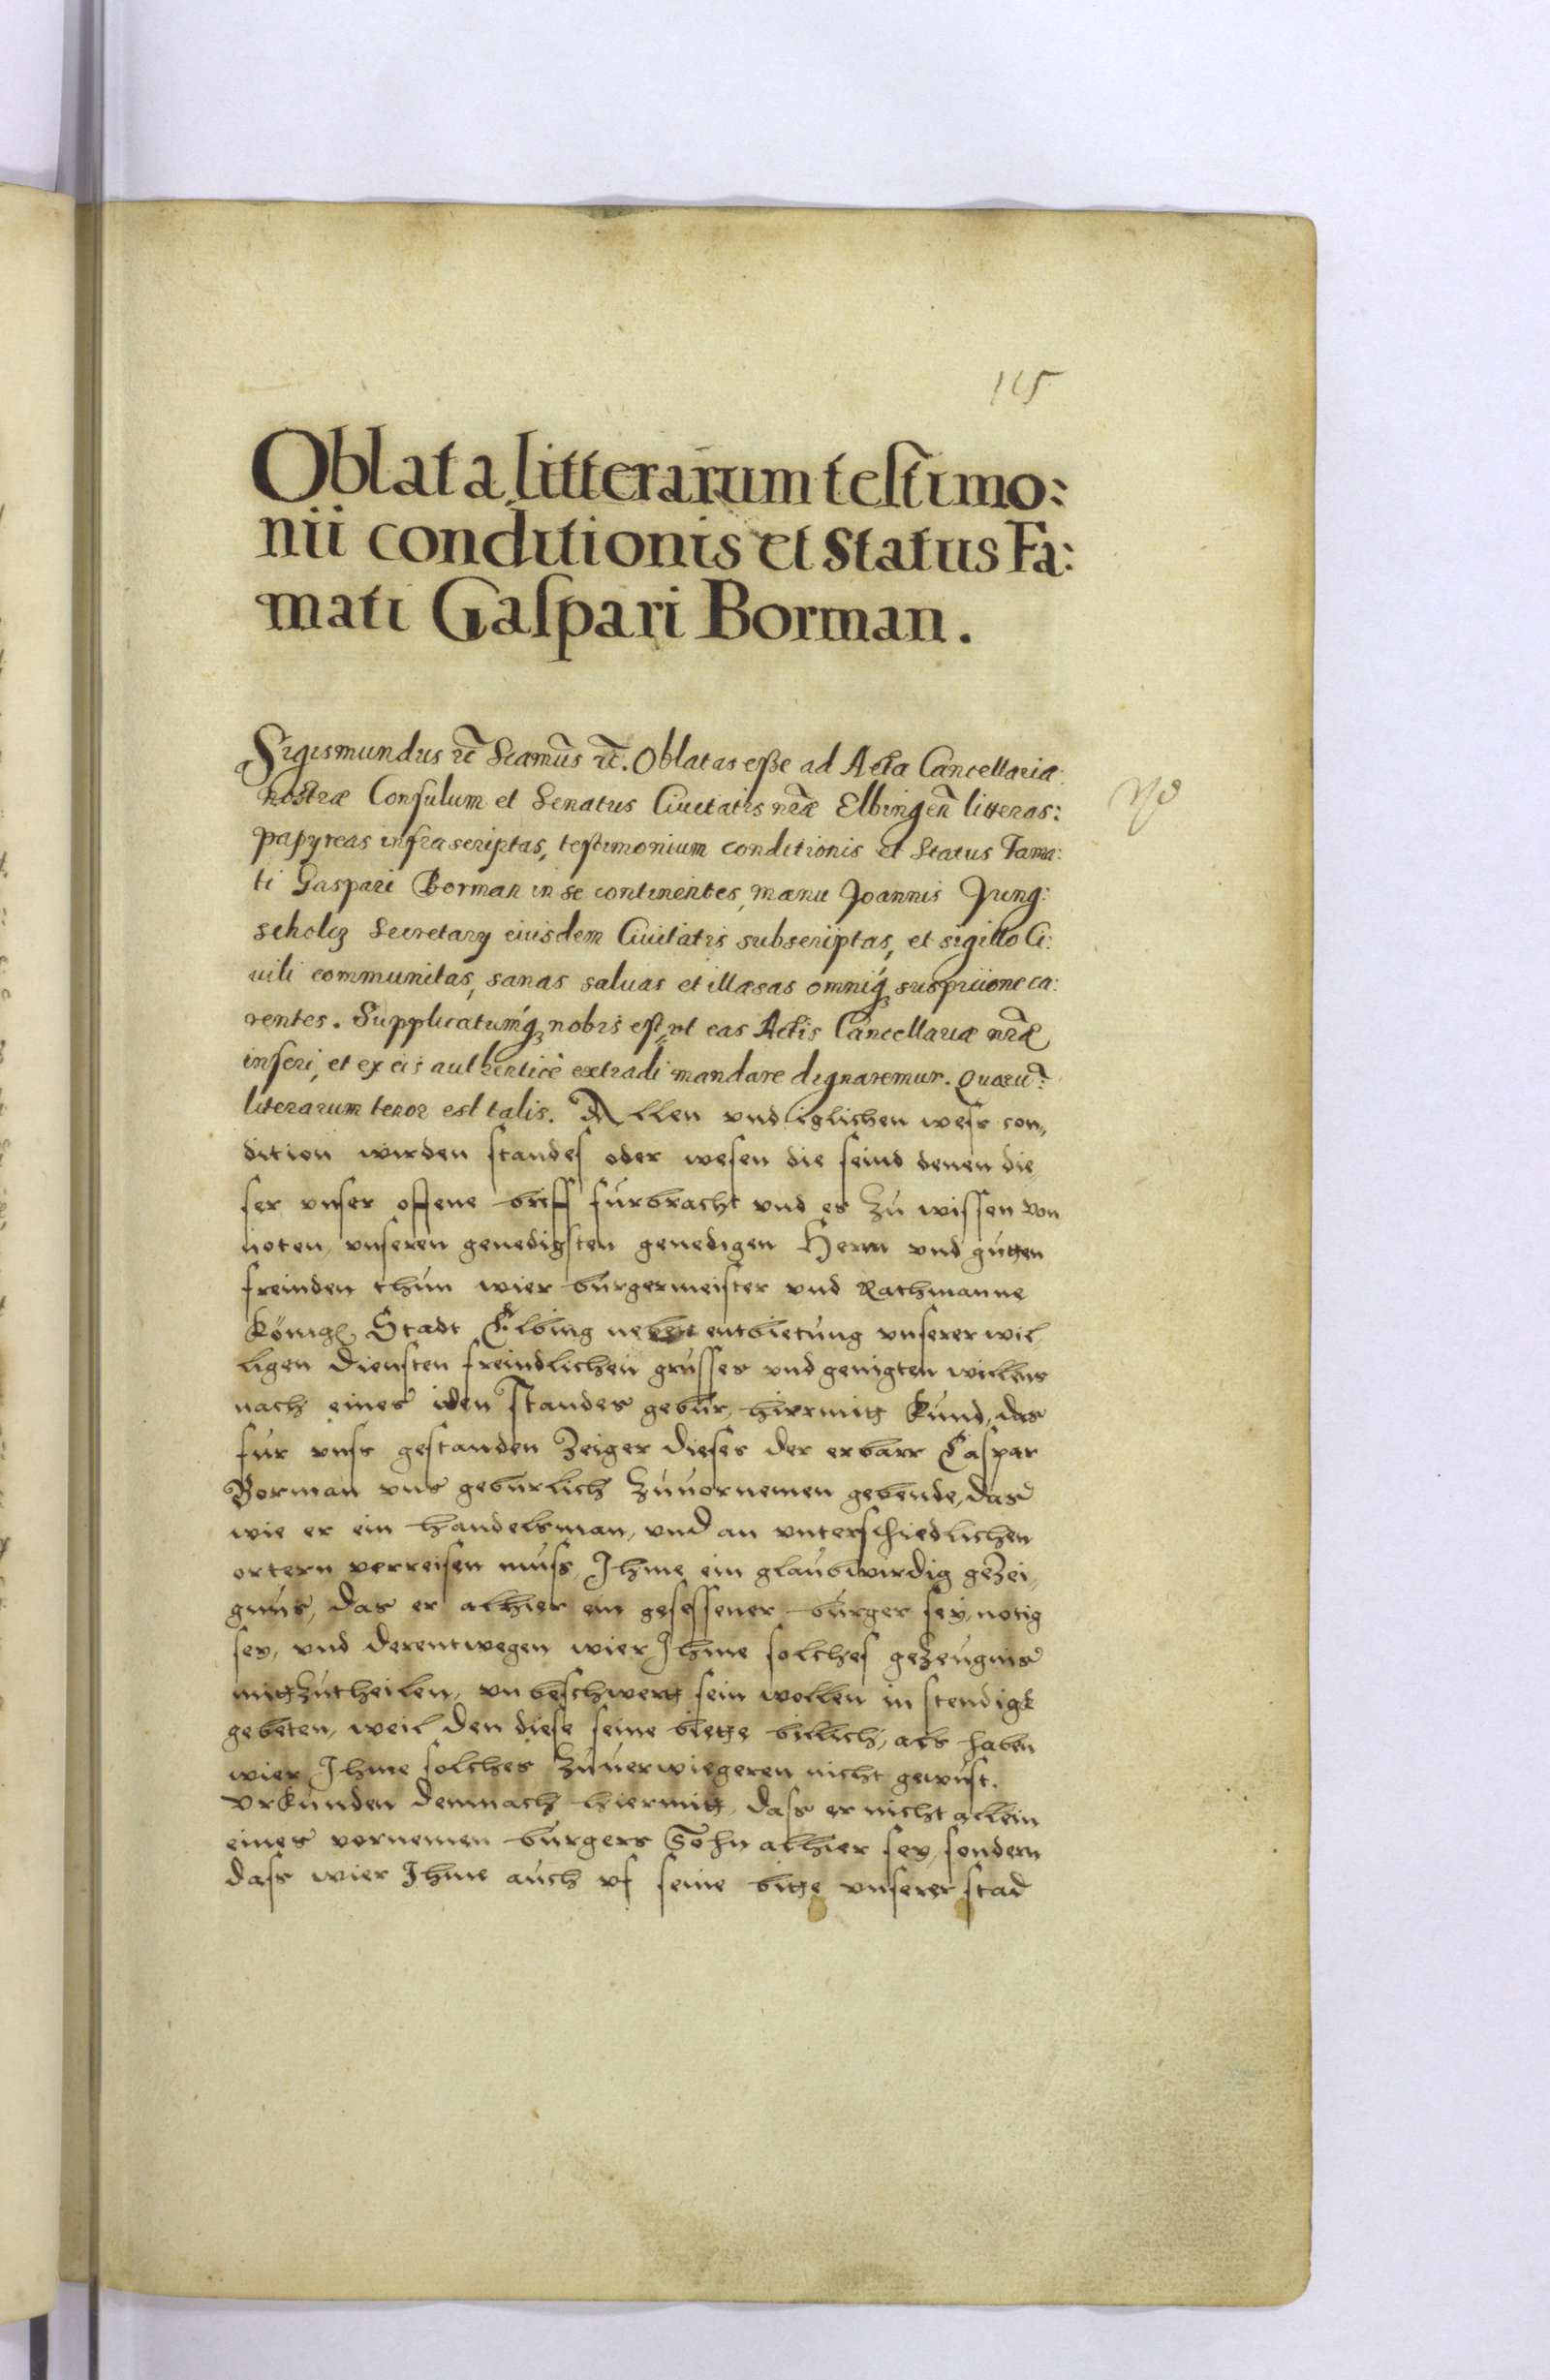 115
Oblata litterarum testimo:
nii conditionis et status Fa:
mati Gaspari Borman.
Sigismundus etc̃ Seamũs etc̃. Oblatas eße ad Acta Cancellariæ
nostræ Consulum et Senatus Ciuitatis nr̃æ Elbingeñ litteras:
papyreas infrascriptas, testimonium conditionis et Status Fama:
ti Gaspari Borman in se continentes, manu Joannis Jung:
scholcz Secretarÿ eiusdem Ciuitatis subscriptas, et sigillo Ci:
uili communitas, sanas saluas et illæsas omniq₃ suspicione ca:
rentes. Supplicatumq₃ nobis est, vt eas Actis Cancellariæ nr̃æ
inseri, et ex eis authenticè extradi mandare dignaremur. Quarũ
literarum tenor est talis. Allen vnd iglichen wess con,,
dition wirden standes oder wesen die seind denen die
ser vnser offene brieff fürbracht vnd es zu wissen von
noten, vnseren genedigsten genedigen Herrn vnd gutten
freinden thun wier bürgermeister vnd Rathmanne
Königl. Stadt Elbing neben entbietung vnserer wil
ligen Diensten freindlichen grusses vnd genigten willens
nach eines iden standes gebür, hiermitt kund, das
für vnss gestanden Zeiger dieses der erbarr Caspar
Borman vns gebürlich zuuornemen gebende, das
wie er ein handelsman, vnd an vnterschiedlichen
ortern verreisen muss, Ihme ein glaubwirdig gezei,,
gnus, das er alhier ein gesessener bürger seÿ, notig
sey, vnd derentwegen wier Ihme solches gezeugnis
mittzutheilen, vnbeschwert sein wollen in stendigk
gebeten, weil den diese seine biette billich, als haben
wier Ihme solches zuuerwiegeren nicht gewust.
Vrkunden demnach hiermitt, dass er nicht allein
eines vornemen bürgers Sohn alhier sey, sondern
dass wier Ihme auch vf seine bitte vnserer stad